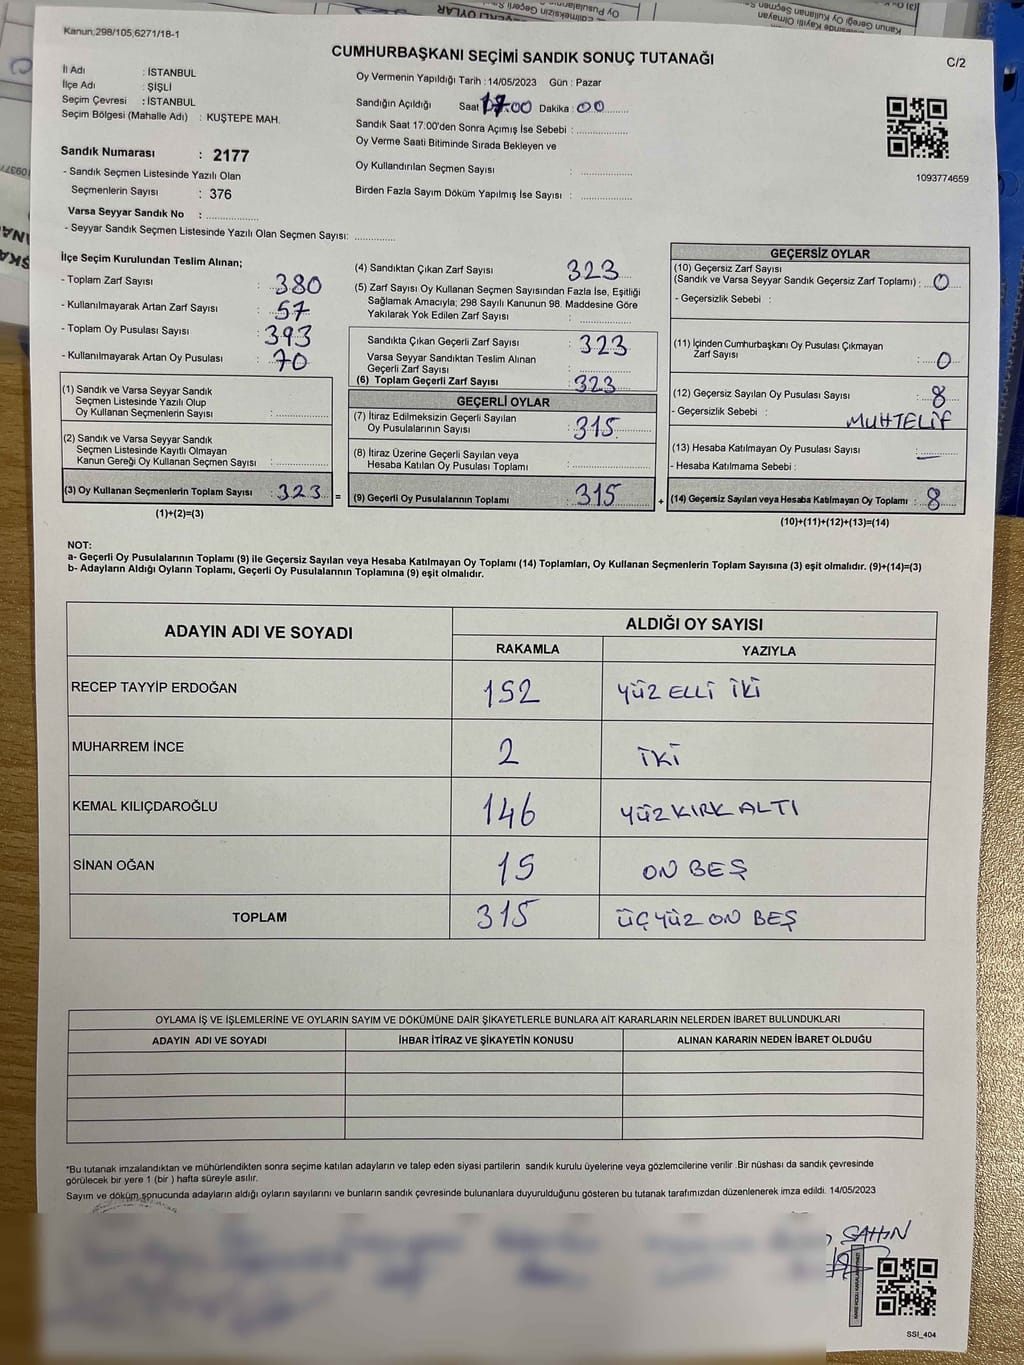 Kanun,298/105,6271/18-1
CUMHURBAŞKANI SEÇİMİ SANDIK SONUÇ TUTANAĞI
C/2
İl Adı : İSTANBUL
İlçe Adı : ŞİŞLİ
Seçim Çevresi : İSTANBUL
Seçim Bölgesi (Mahalle Adı) : KUŞTEPE MAH.
Sandık Numarası : 2177
- Sandık Seçmen Listesinde Yazılı Olan
Seçmenlerin Sayısı : 376
Varsa Seyyar Sandık No : ................
- Seyyar Sandık Seçmen Listesinde Yazılı Olan Seçmen Sayısı: ............
Oy Vermenin Yapıldığı Tarih : 14/05/2023 Gün : Pazar
Sandığın Açıldığı Saat 17.00 Dakika : 00
Sandık Saat 17:00'den Sonra Açımış İse Sebebi : ................
Oy Verme Saati Bitiminde Sırada Bekleyen ve
Oy Kullandırılan Seçmen Sayısı : ................
Birden Fazla Sayım Döküm Yapılmış İse Sayısı : ................
1093774659
İlçe Seçim Kurulundan Teslim Alınan;
- Toplam Zarf Sayısı : 380
- Kullanılmayarak Artan Zarf Sayısı : 57
- Toplam Oy Pusulası Sayısı : 393
- Kullanılmayarak Artan Oy Pusulası : 70
(1) Sandık ve Varsa Seyyar Sandık
Seçmen Listesinde Yazılı Olup
Oy Kullanan Seçmenlerin Sayısı : ................
(2) Sandık ve Varsa Seyyar Sandık
Seçmen Listesinde Kayıtlı Olmayan
Kanun Gereği Oy Kullanan Seçmen Sayısı : ................
(3) Oy Kullanan Seçmenlerin Toplam Sayısı : 323 =
(1)+(2)=(3)
(4) Sandıktan Çıkan Zarf Sayısı 323
(5) Zarf Sayısı Oy Kullanan Seçmen Sayısından Fazla İse, Eşitliği
Sağlamak Amacıyla; 298 Sayılı Kanunun 98. Maddesine Göre
Yakılarak Yok Edilen Zarf Sayısı : ................
Sandıkta Çıkan Geçerli Zarf Sayısı : 323
Varsa Seyyar Sandıktan Teslim Alınan
Geçerli Zarf Sayısı : ................
(6) Toplam Geçerli Zarf Sayısı : 323
GEÇERLİ OYLAR
(7) İtiraz Edilmeksizin Geçerli Sayılan
Oy Pusulalarının Sayısı : 315
(8) İtiraz Üzerine Geçerli Sayılan veya
Hesaba Katılan Oy Pusulası Toplamı : ................
(9) Geçerli Oy Pusulalarının Toplamı : 315 +
GEÇERSİZ OYLAR
(10) Geçersiz Zarf Sayısı
(Sandık ve Varsa Seyyar Sandık Geçersiz Zarf Toplamı) : 0
- Geçersizlik Sebebi :
(11) İçinden Cumhurbaşkanı Oy Pusulası Çıkmayan
Zarf Sayısı : 0
(12) Geçersiz Sayılan Oy Pusulası Sayısı : 8
- Geçersizlik Sebebi : MUHTELİF
(13) Hesaba Katılmayan Oy Pusulası Sayısı : –
- Hesaba Katılmama Sebebi :
(14) Geçersiz Sayılan veya Hesaba Katılmayan Oy Toplamı : 8
(10)+(11)+(12)+(13)=(14)
NOT:
a- Geçerli Oy Pusulalarının Toplamı (9) ile Geçersiz Sayılan veya Hesaba Katılmayan Oy Toplamı (14) Toplamları, Oy Kullanan Seçmenlerin Toplam Sayısına (3) eşit olmalıdır. (9)+(14)=(3)
b- Adayların Aldığı Oyların Toplamı, Geçerli Oy Pusulalarının Toplamına (9) eşit olmalıdır.
ADAYIN ADI VE SOYADI ALDIĞI OY SAYISI
RAKAMLA YAZIYLA
RECEP TAYYİP ERDOĞAN 152 YÜZ ELLİ İKİ
MUHARREM İNCE 2 İKİ
KEMAL KILIÇDAROĞLU 146 YÜZ KIRK ALTI
SİNAN OĞAN 15 ON BEŞ
TOPLAM 315 ÜÇ YÜZ ON BEŞ
OYLAMA İŞ VE İŞLEMLERİNE VE OYLARIN SAYIM VE DÖKÜMÜNE DAİR ŞİKAYETLERLE BUNLARA AİT KARARLARIN NELERDEN İBARET BULUNDUKLARI
ADAYIN ADI VE SOYADI İHBAR İTİRAZ VE ŞİKAYETİN KONUSU ALINAN KARARIN NEDEN İBARET OLDUĞU
"Bu tutanak imzalandıktan ve mühürlendikten sonra seçime katılan adayların ve talep eden siyasi partilerin sandık kurulu üyelerine veya gözlemcilerine verilir .Bir nüshası da sandık çevresinde
görülecek bir yere 1 (bir ) hafta süreyle asılır.
Sayım ve döküm sonucunda adayların aldığı oyların sayılarını ve bunların sandık çevresinde bulunanlara duyurulduğunu gösteren bu tutanak tarafımızdan düzenlenerek imza edildi. 14/05/2023
ŞAHİN
SSI_404